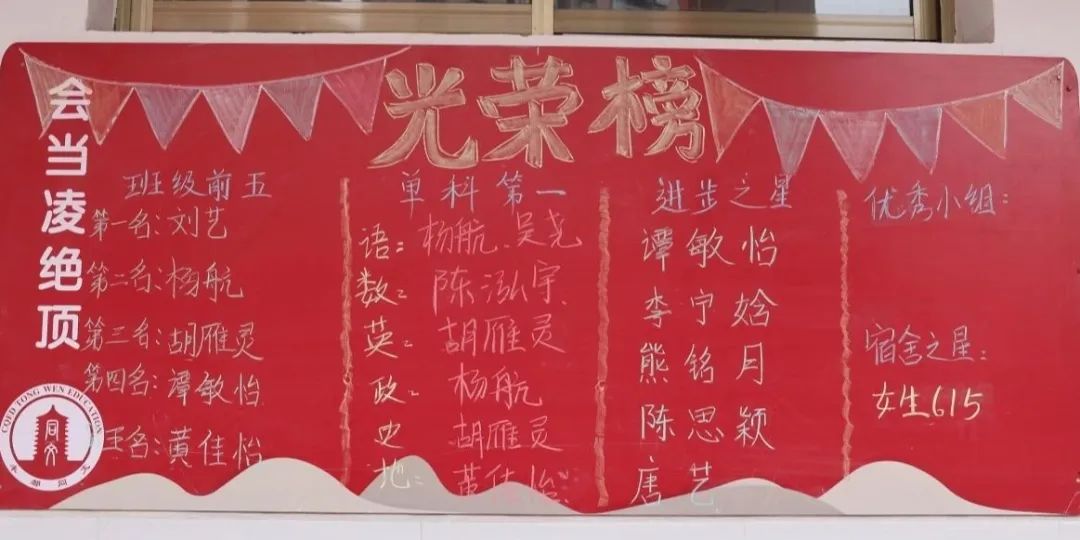 会当凌绝顶
光荣榜
班级前五
第一名:刘艺
第二名:杨航
第三名:胡雁灵
第四名:谭敏怡
五名:黄佳怡
单科第一
语:杨航、吴尧
数:陈泓宇
英:胡雁灵
政:杨航
史 胡雁灵
地:黄佳怡
进步之星
谭敏怡
李宁
熊铭月
陈思颖
唐艺
优秀小组:
宿舍之星:
女生615
CQFD TONG WEN EDUCATION